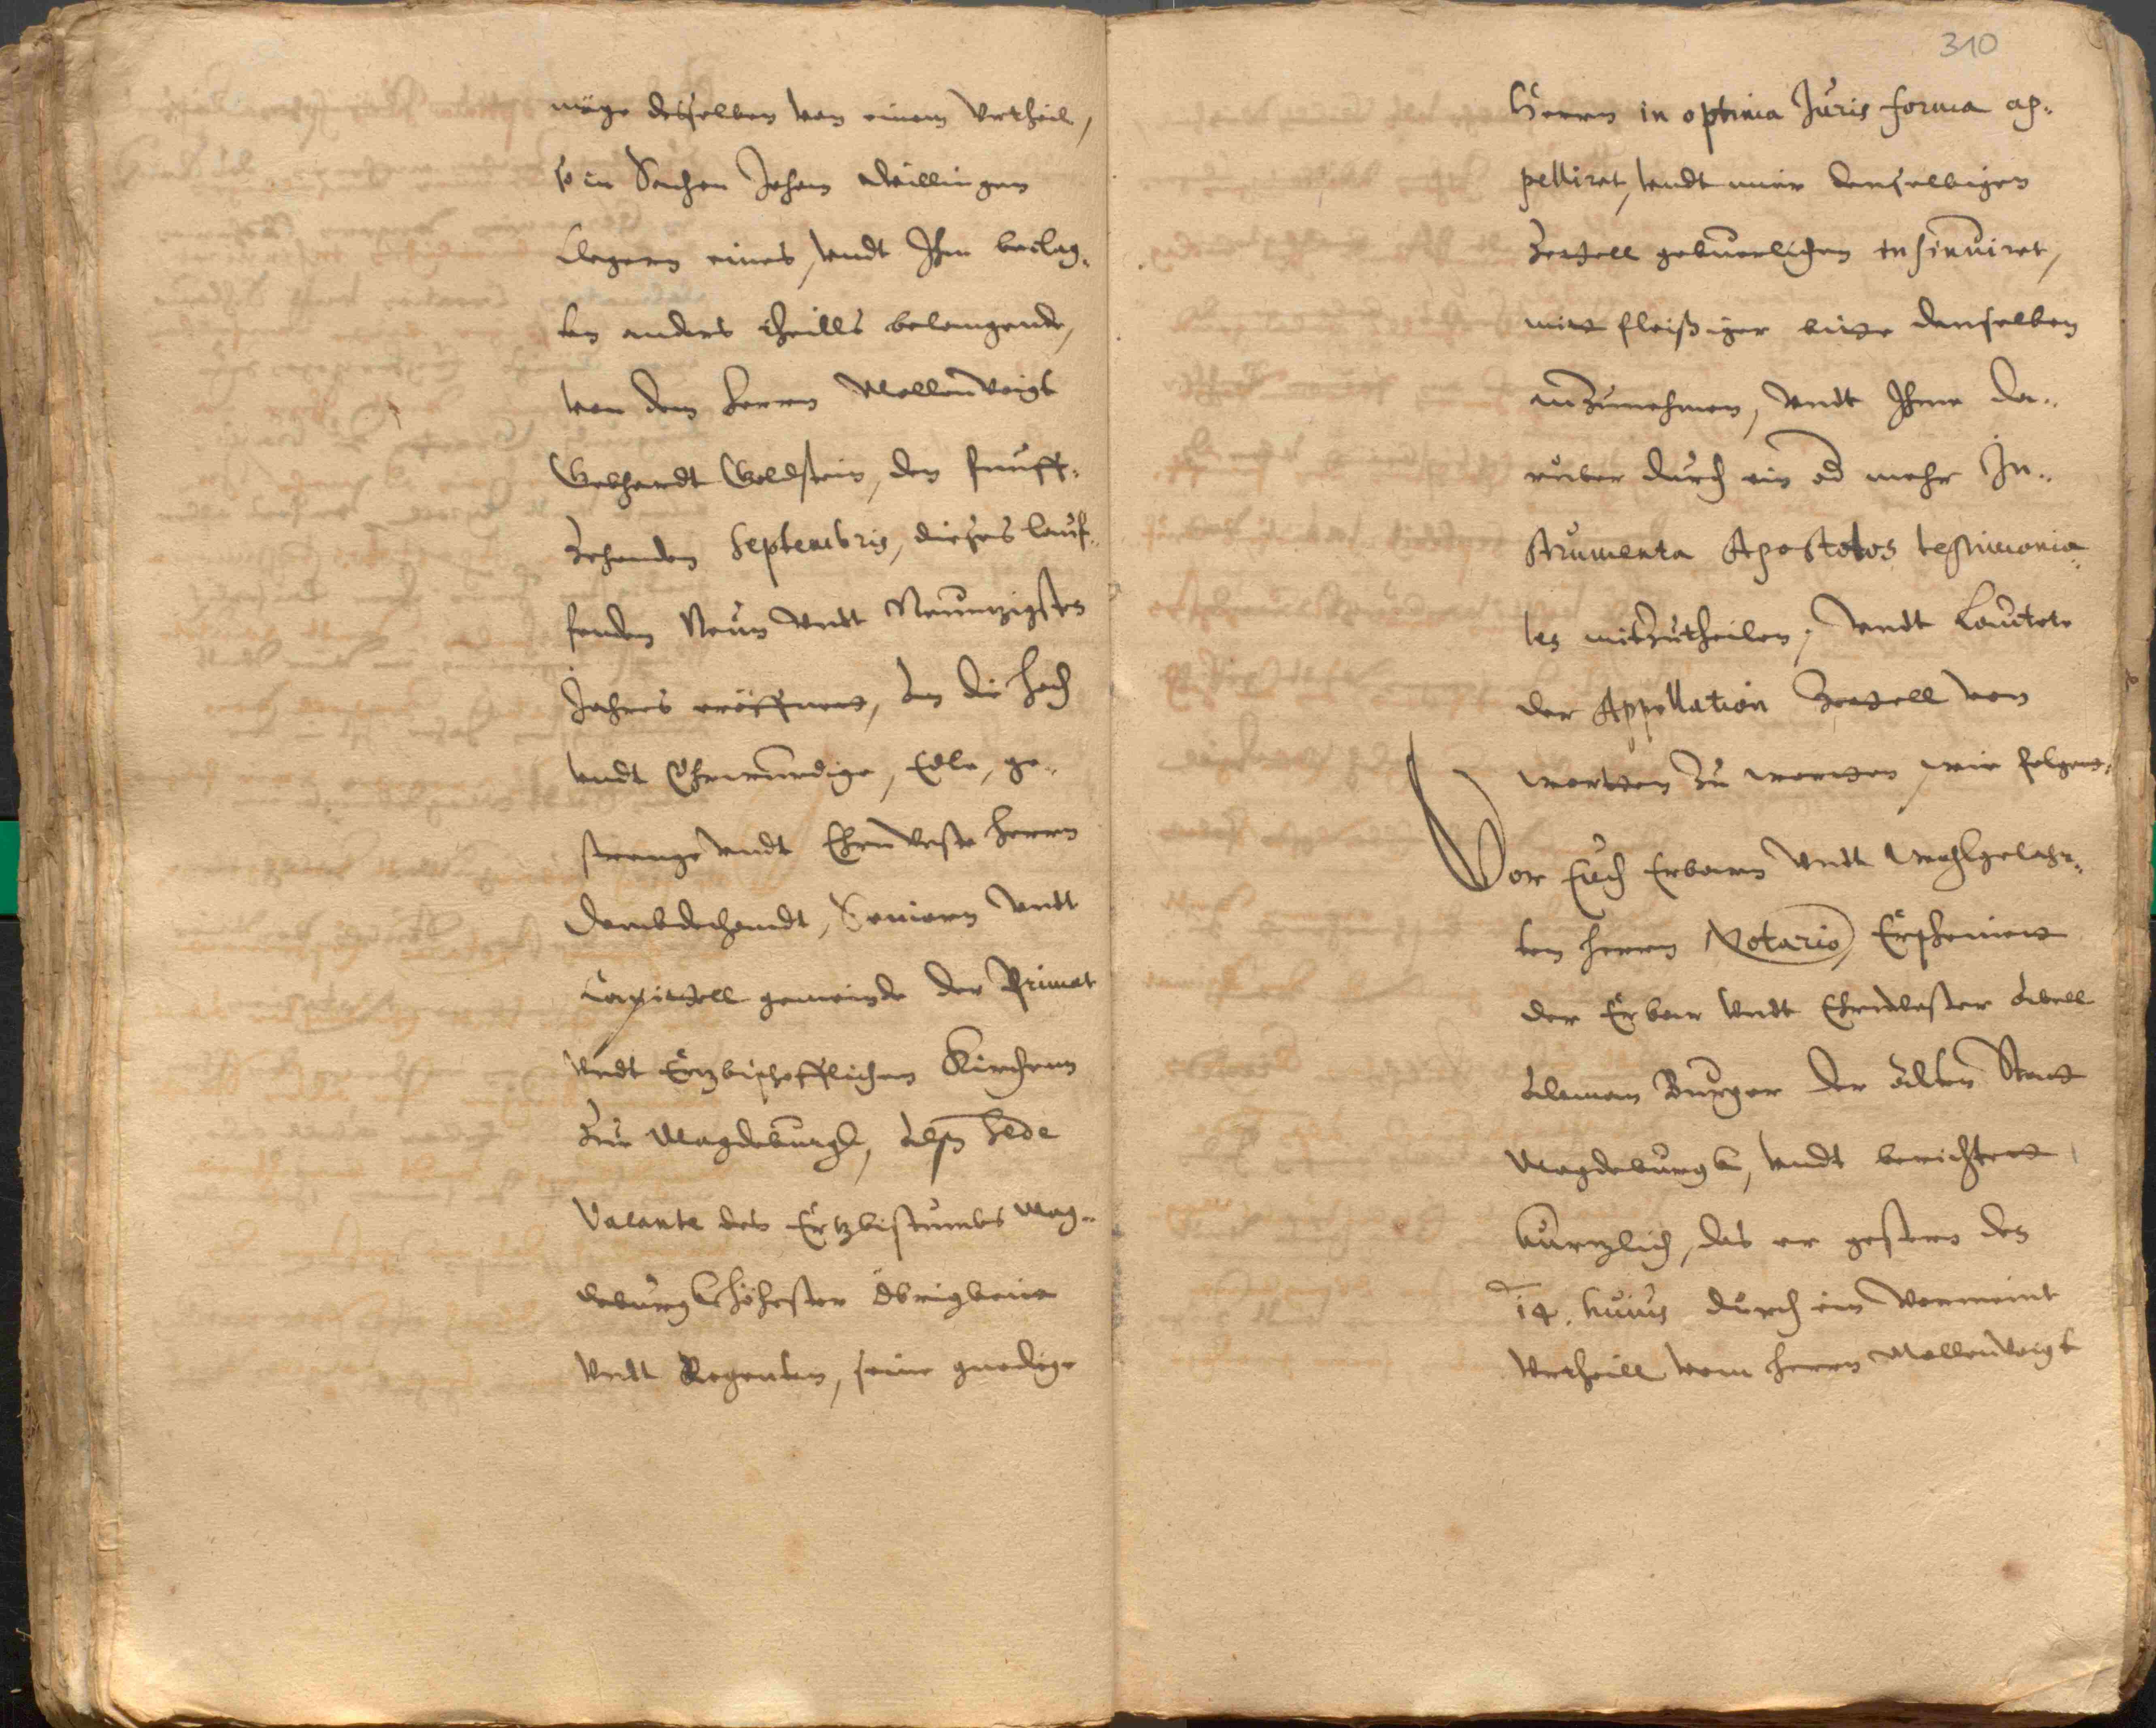 müge desselben von einem Vrtheil,
so in Sachen Johan Willingen
Clegern eines, vndt Ihm beclag¬
ten anders theills belangende,
von dem Herrn Mollenvoigt
Gebhardt Goldstein, den funff¬
zehenden Septembris, dieses lauf¬
fenden Neun vndt Neunzigsten
Jahres eröffnet, an die Hoch
vndt Ehrwürdige, Edle, ge¬
strenge vndt Ehrnveste Herrn
Dombdechandt, Seniorn vndt
Capittell gemeinde der Primat
vndt Ertzbischofflichen Kirchenn
zue Magdeburgk, alß Sede
Vacante des Ertzbistumbs Mag¬
deburgk höhester Obrigkeit
vndt Regenten, seine gnedige
310
Herrn in optima Juris forma ap¬
pelliret, vndt mir denselbigen
Zettell gebuerlichen insinuiret,
mitt fleißiger bitte denselben
anzunehmen, vndt Ihme da¬
rüber durch ein od mehr In¬
strumenta Apostolos testimonia¬
les mitzutheilen, vndt Lautete
der Appellation Zettell von
wortten zu wortten, wie folgett,
Vor Euch Erbarn vndt Wohlgelahr¬
ten Herrn Notario, Erscheinett
der Erbar vndt Ehrnvester Abell
Aleman Burger der alten Stadt
Magdeburgk, vndt berichtett
kurtzlich, das er gestern den
14. huius durch ein vermeint
Vrtheill vom Herrn Mollenvoigt